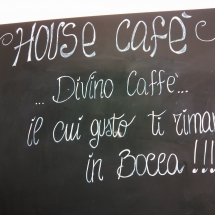 HOUSE CAFÈ
... DIVINO CAFFE'...
il cui gusto ti riman
in BOCCA !!!